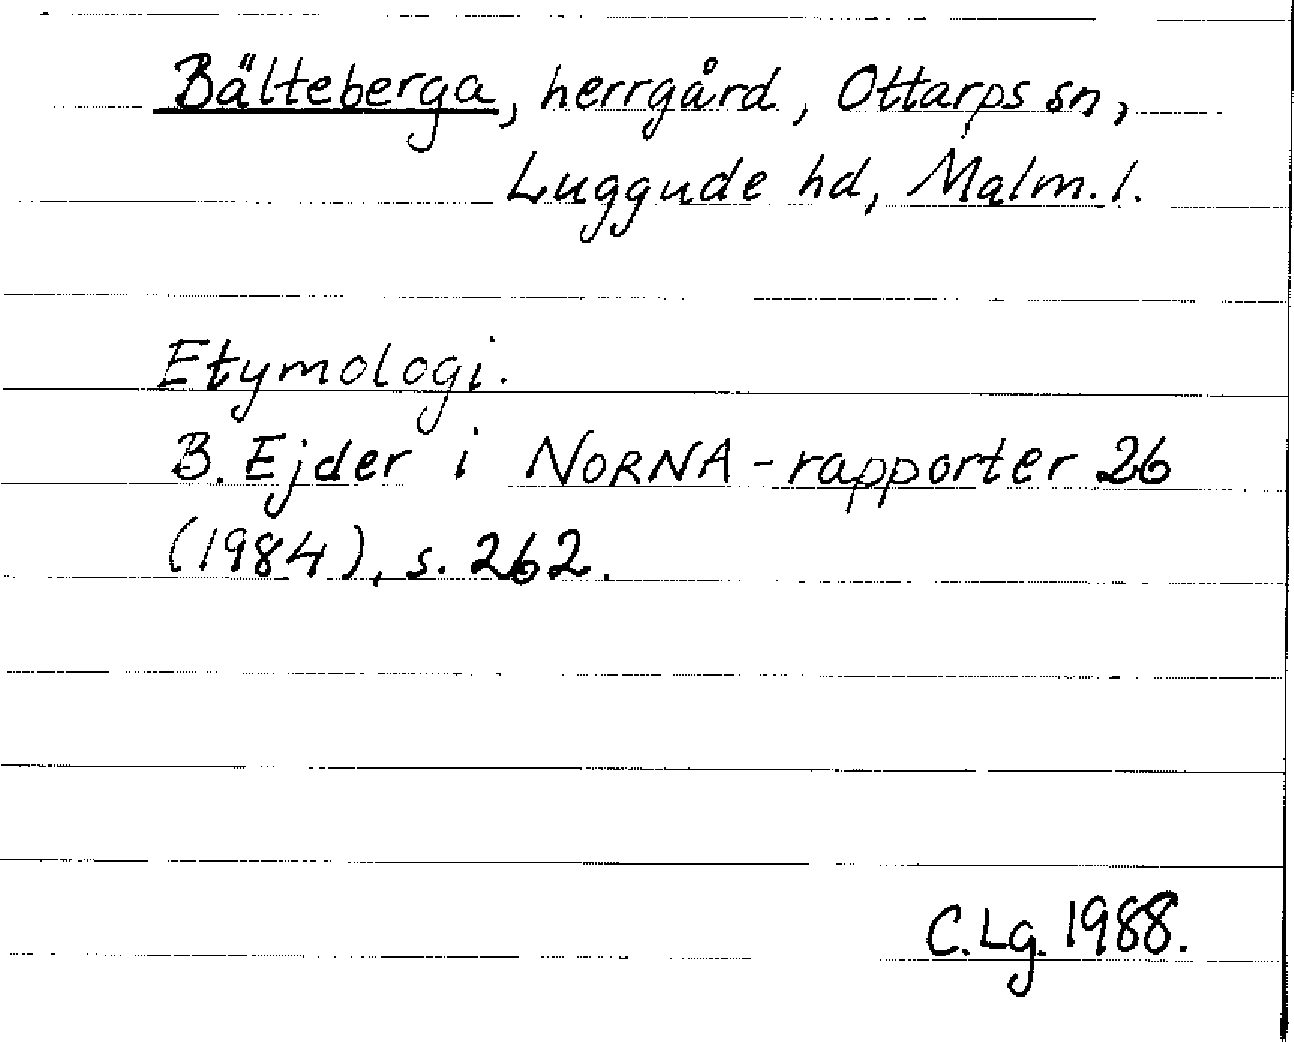 Bälteberga, herrgård, Ottarps sn,
Luggude hd, Malm. l.
Etymologi.
B. Ejder i NORNA-rapporter 26
(1984), s. 262.
C. Lg. 1988.